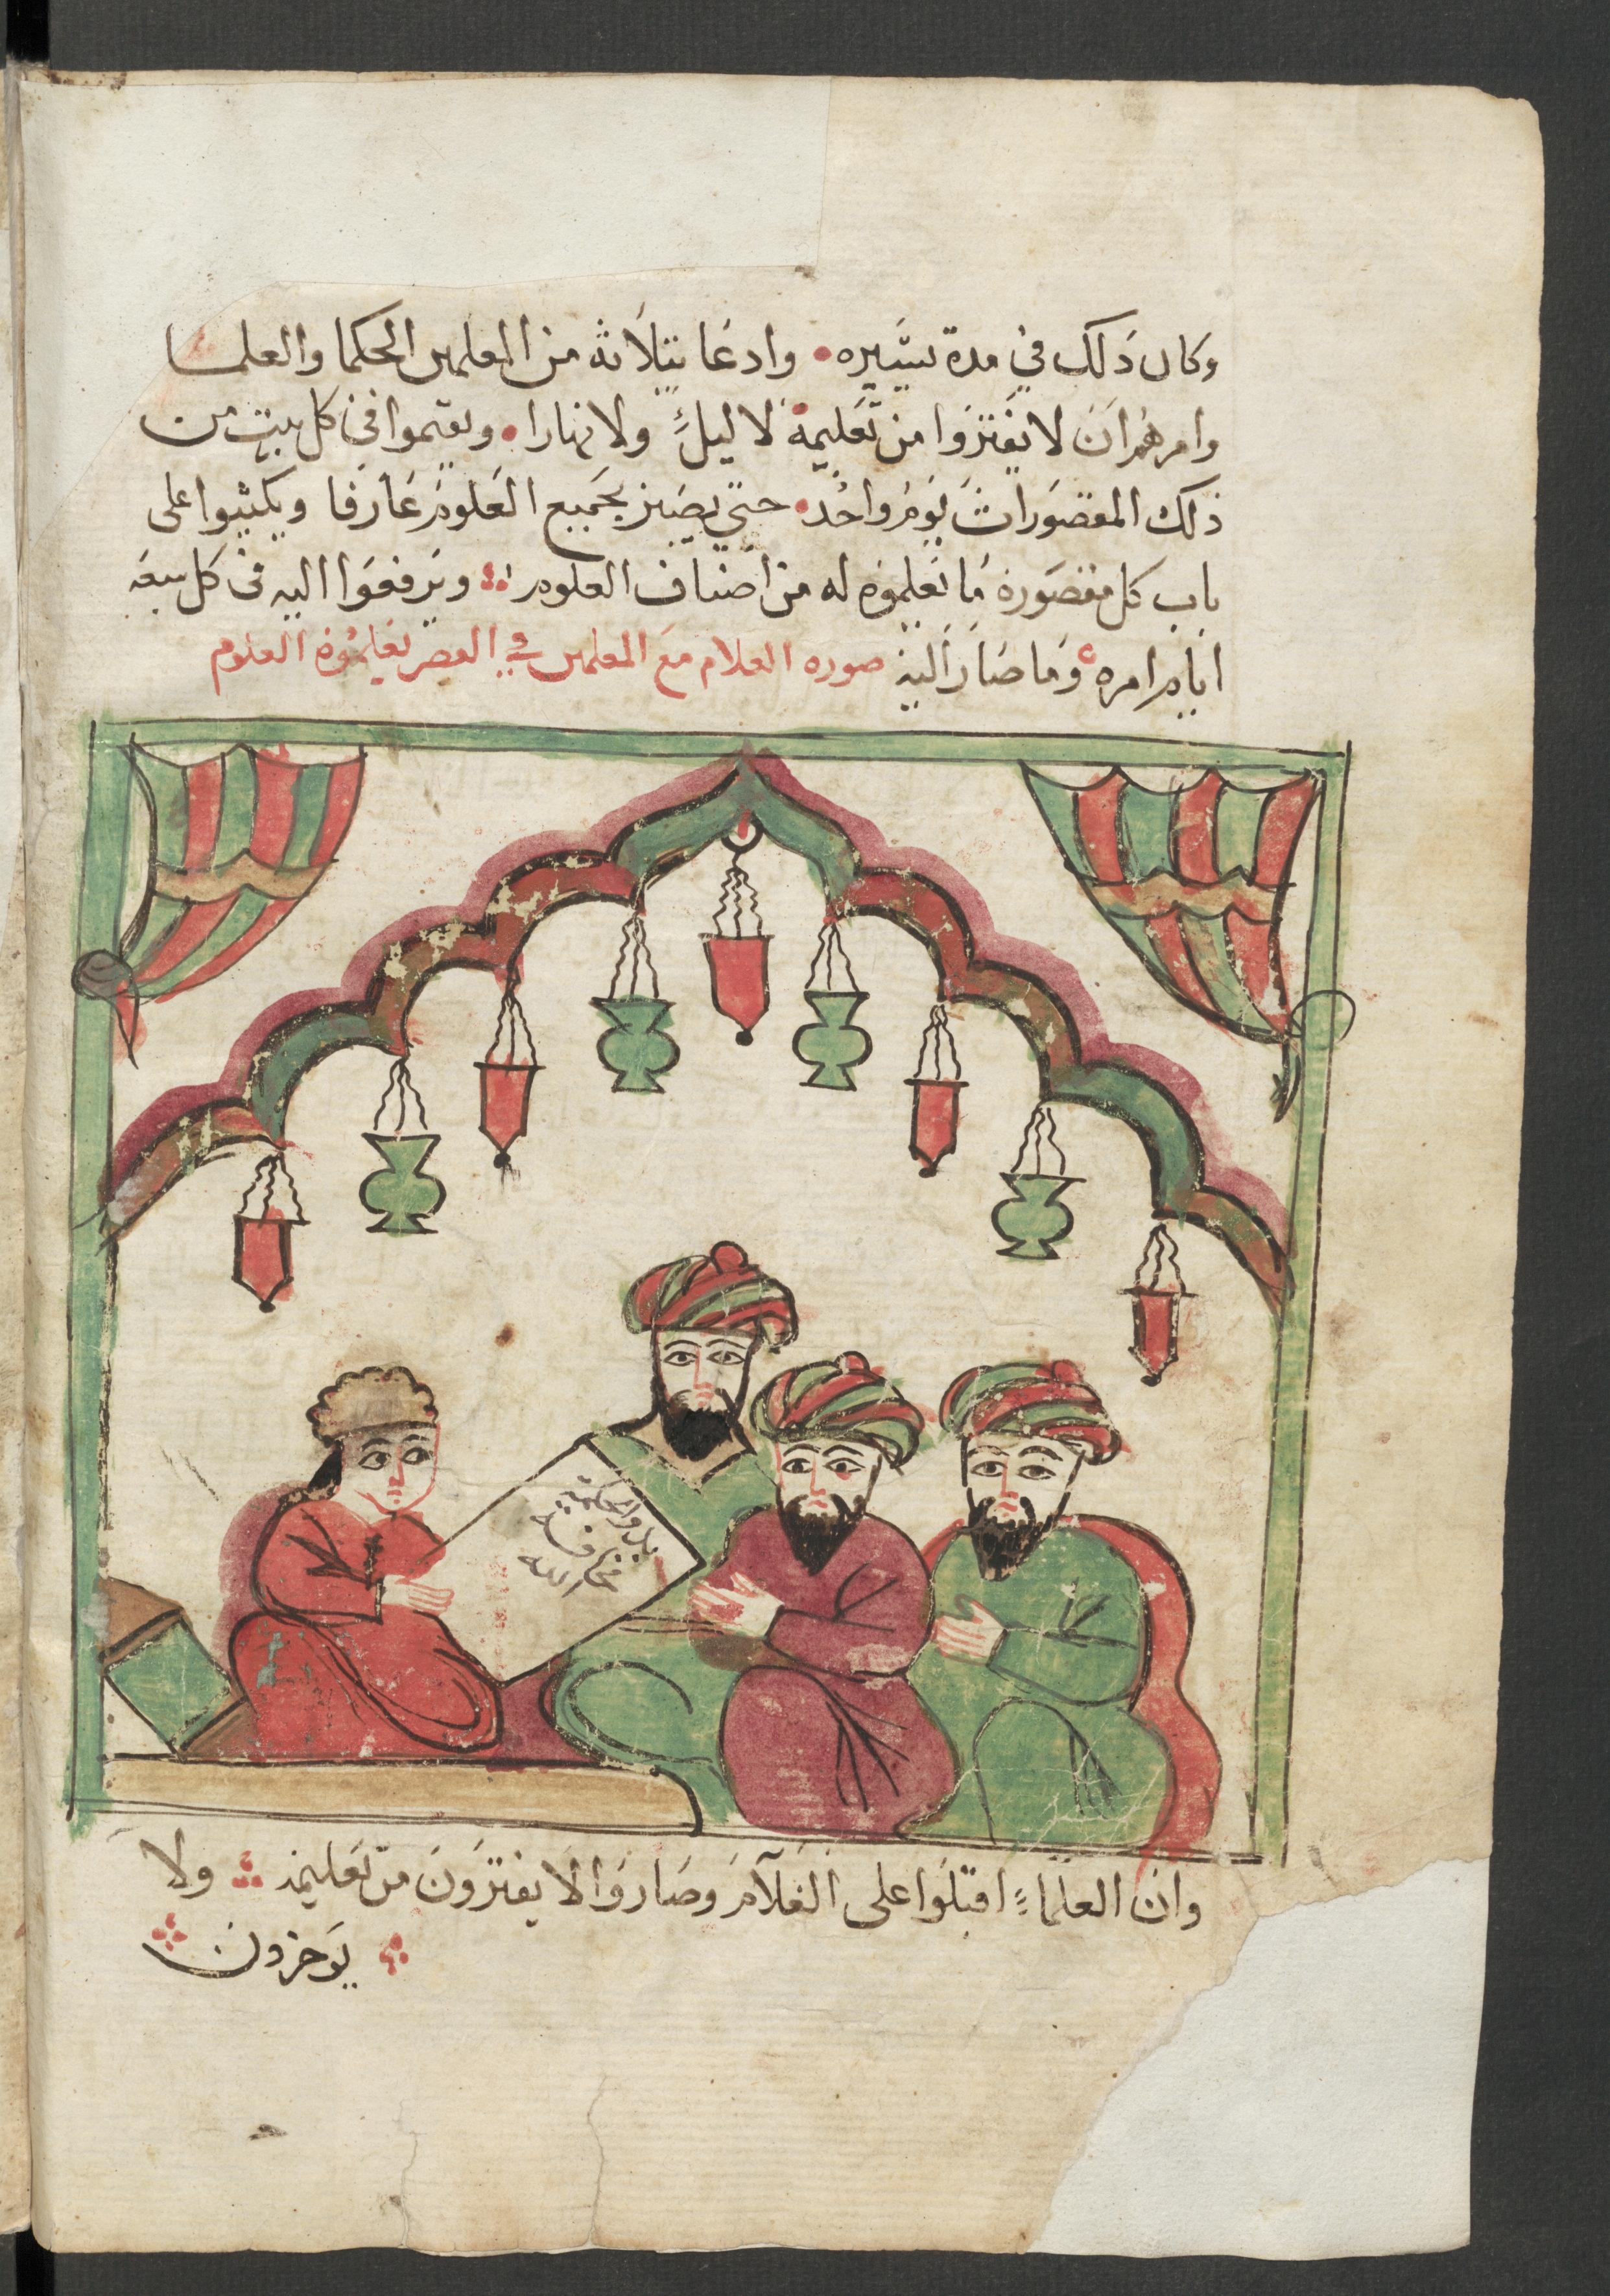 وكان ذلك في مدة يسيره وادعا بثلاثه من المعلمين الحكما والعلما
وامرهم ان لا يفتروا من تعليمه لا ليلً ولا نهارا ويقيموا في كل بيت من
ذلك المقصورات يوم واحد حتي يصير بجميع العلوم عارفا ويكتبوا على
باب كل مقصورة ما تعلموه له من اصناف العلوم ويرفعوا اليه في كل سبعة
ايام امره وما صار اليه صوره الغلام مع المعلمين في القصر يعلموه العلوم
وان العلماءِ اقبلوا على الغلام وصاروا لا يفترون من تعليمه ولا
يوخرون